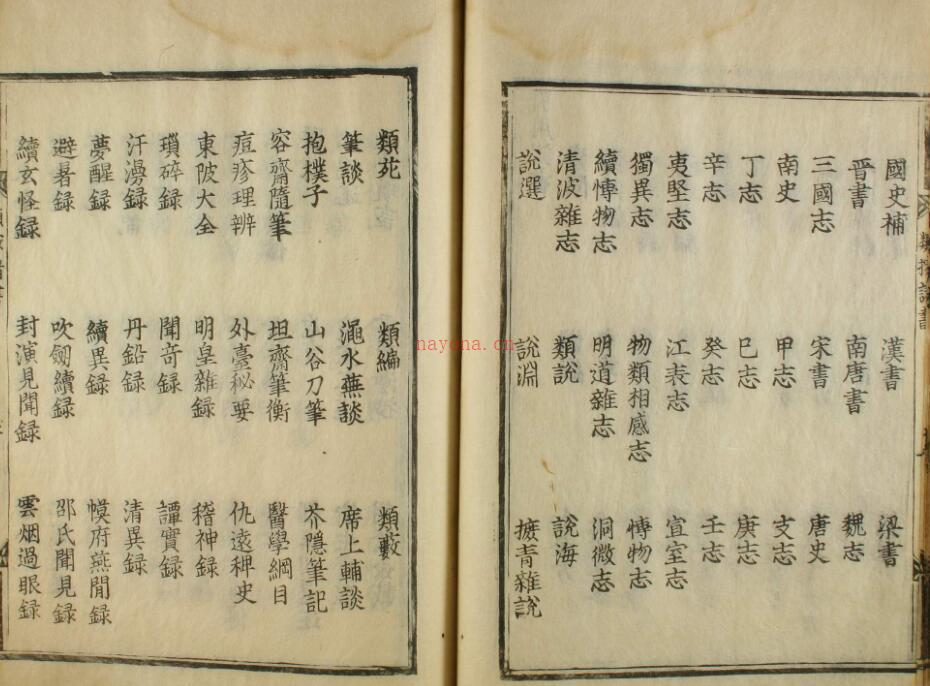 國史補 漢書 梁書
晉書 南唐書 魏志
三國志 宋書 唐史
南史 甲志 支志
丁志 巳志 庚志
辛志 癸志 壬志
夷堅志 江表志 宣室志
獨異志 物類相感志 愽物志
續愽物志 明道雜志 洞微志
清波雜志 類說 說海
說選 說淵 摭青雜說
類苑 類編 類藪
筆談 澠水燕談 席上輔談
抱樸子 山谷刀筆 芥隱筆記
容齋隨筆 坦齋筆衡 醫學綱目
痘疹理辨 外臺秘要 仇遠稗史
東陂大全 明皇雜録 稽神録
瑣碎録 聞竒録 譚賓録
汗澷録 丹鉛録 清異録
夢醒録 續異録 幙府燕閒録
避暑録 吹劒續録 邵氏聞見録
續玄怪録 封演見聞録 雲烟過眼録
nayona.cn